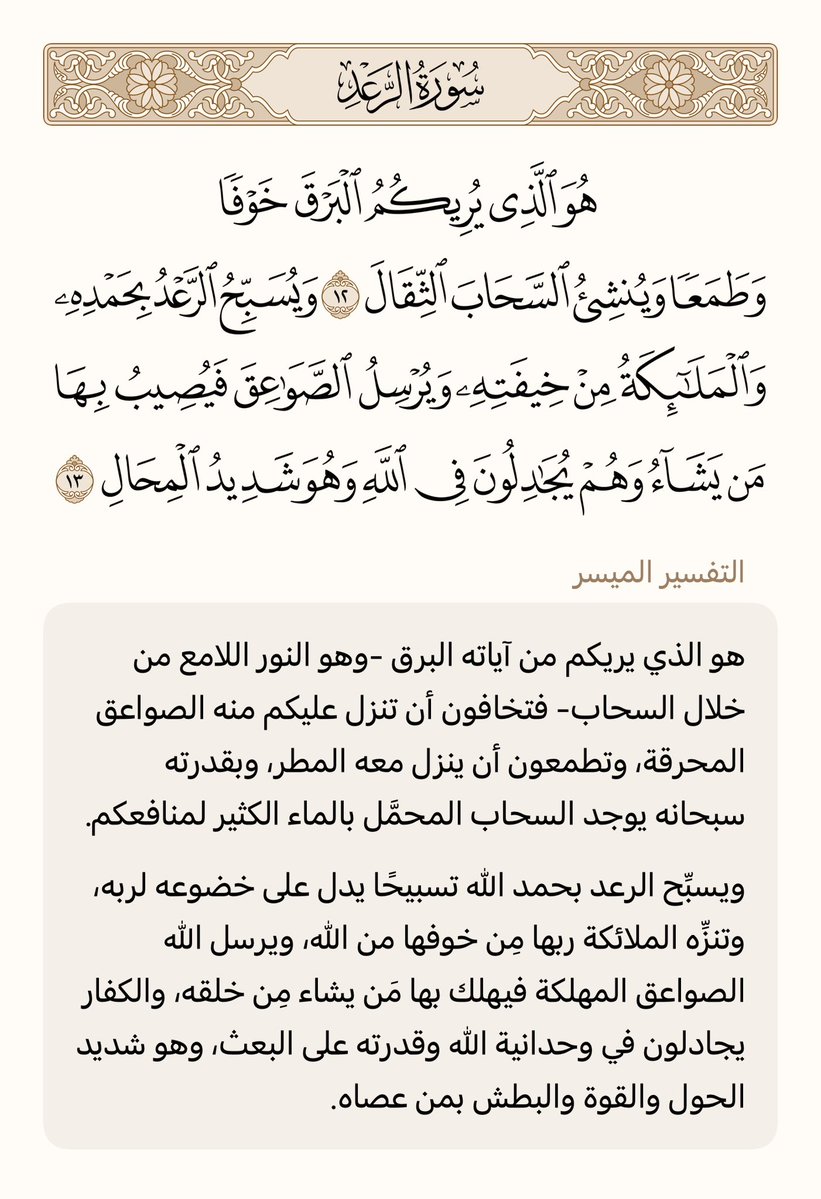 سُورَةُ الرَّعْدِ
هُوَ ٱلَّذِى يُرِيكُمُ ٱلْبَرْقَ خَوْفًا
وَطَمَعًا وَيُنشِئُ ٱلسَّحَابَ ٱلثِّقَالَ ١٢ وَيُسَبِّحُ ٱلرَّعْدُ بِحَمْدِهِۦ
وَٱلْمَلَـٰٓئِكَةُ مِنْ خِيفَتِهِۦ وَيُرْسِلُ ٱلصَّوَٰعِقَ فَيُصِيبُ بِهَا
مَن يَشَآءُ وَهُمْ يُجَـٰدِلُونَ فِى ٱللَّهِ وَهُوَ شَدِيدُ ٱلْمِحَالِ ١٣
التفسير الميسر
هو الذي يريكم من آياته البرق -وهو النور اللامع من
خلال السحاب- فتخافون أن تنزل عليكم منه الصواعق
المحرقة، وتطمعون أن ينزل معه المطر، وبقدرته
سبحانه يوجد السحاب المحمَّل بالماء الكثير لمنافعكم.
ويسبِّح الرعد بحمد الله تسبيحًا يدل على خضوعه لربه،
وتنزِّه الملائكة ربها مِن خوفها من الله، ويرسل الله
الصواعق المهلكة فيهلك بها مَن يشاء مِن خلقه، والكفار
يجادلون في وحدانية الله وقدرته على البعث، وهو شديد
الحول والقوة والبطش بمن عصاه.